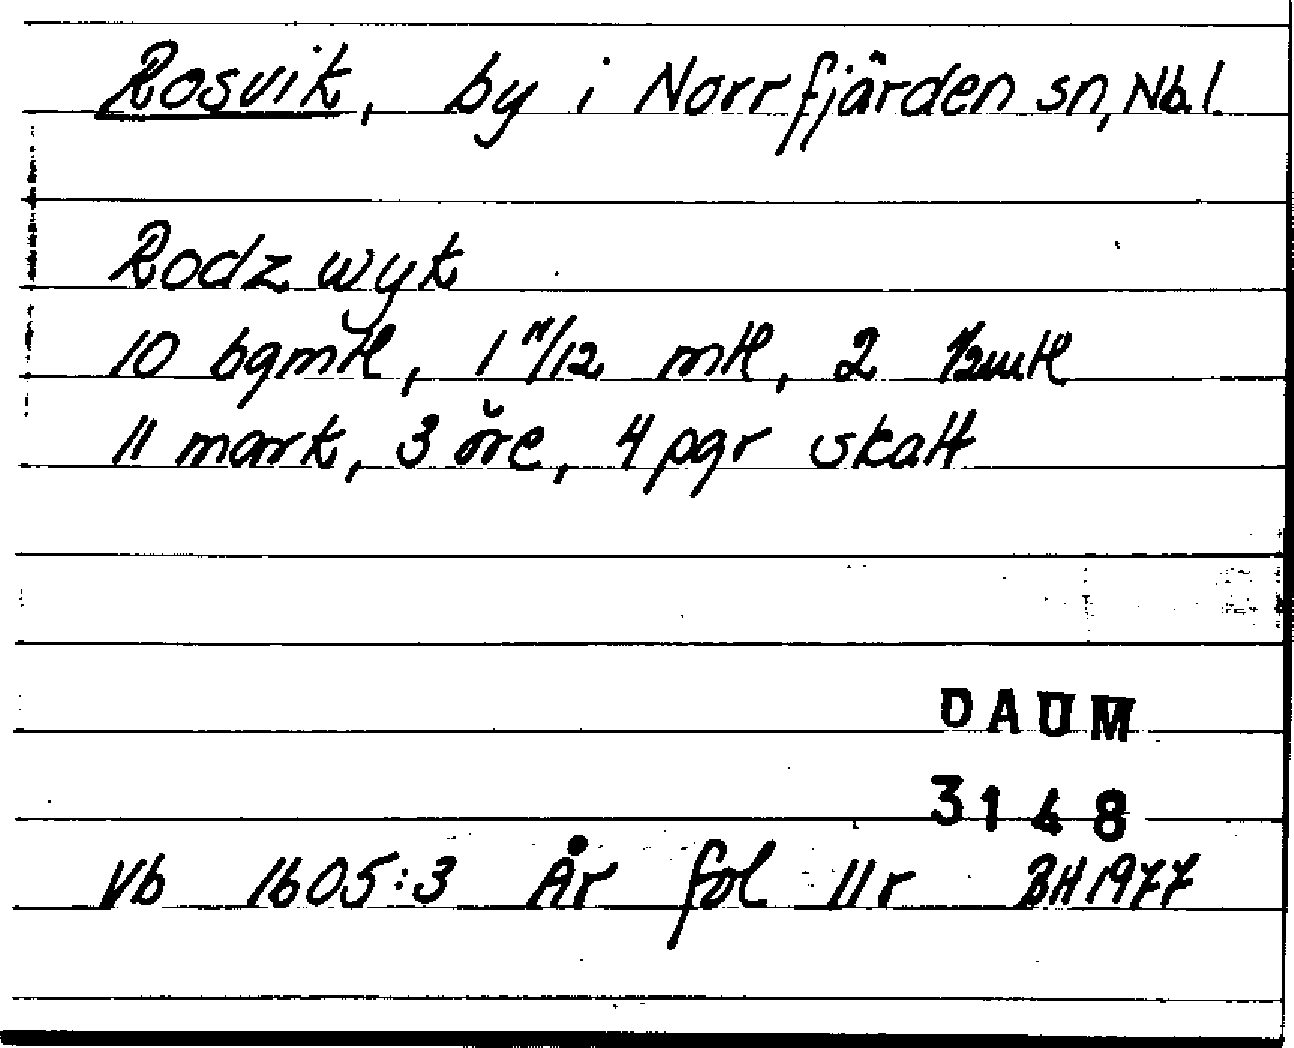 Rosvik, by i Norrfjärden sn, Nb.l.
Rodz wyk
10 bgmtl, 1 11/12 mtl, 2 1/2mtl
11 mark, 3 öre, 4 pgr skatt
DAUM
3148
Vb 1605:3 År fol 11r BH 1977